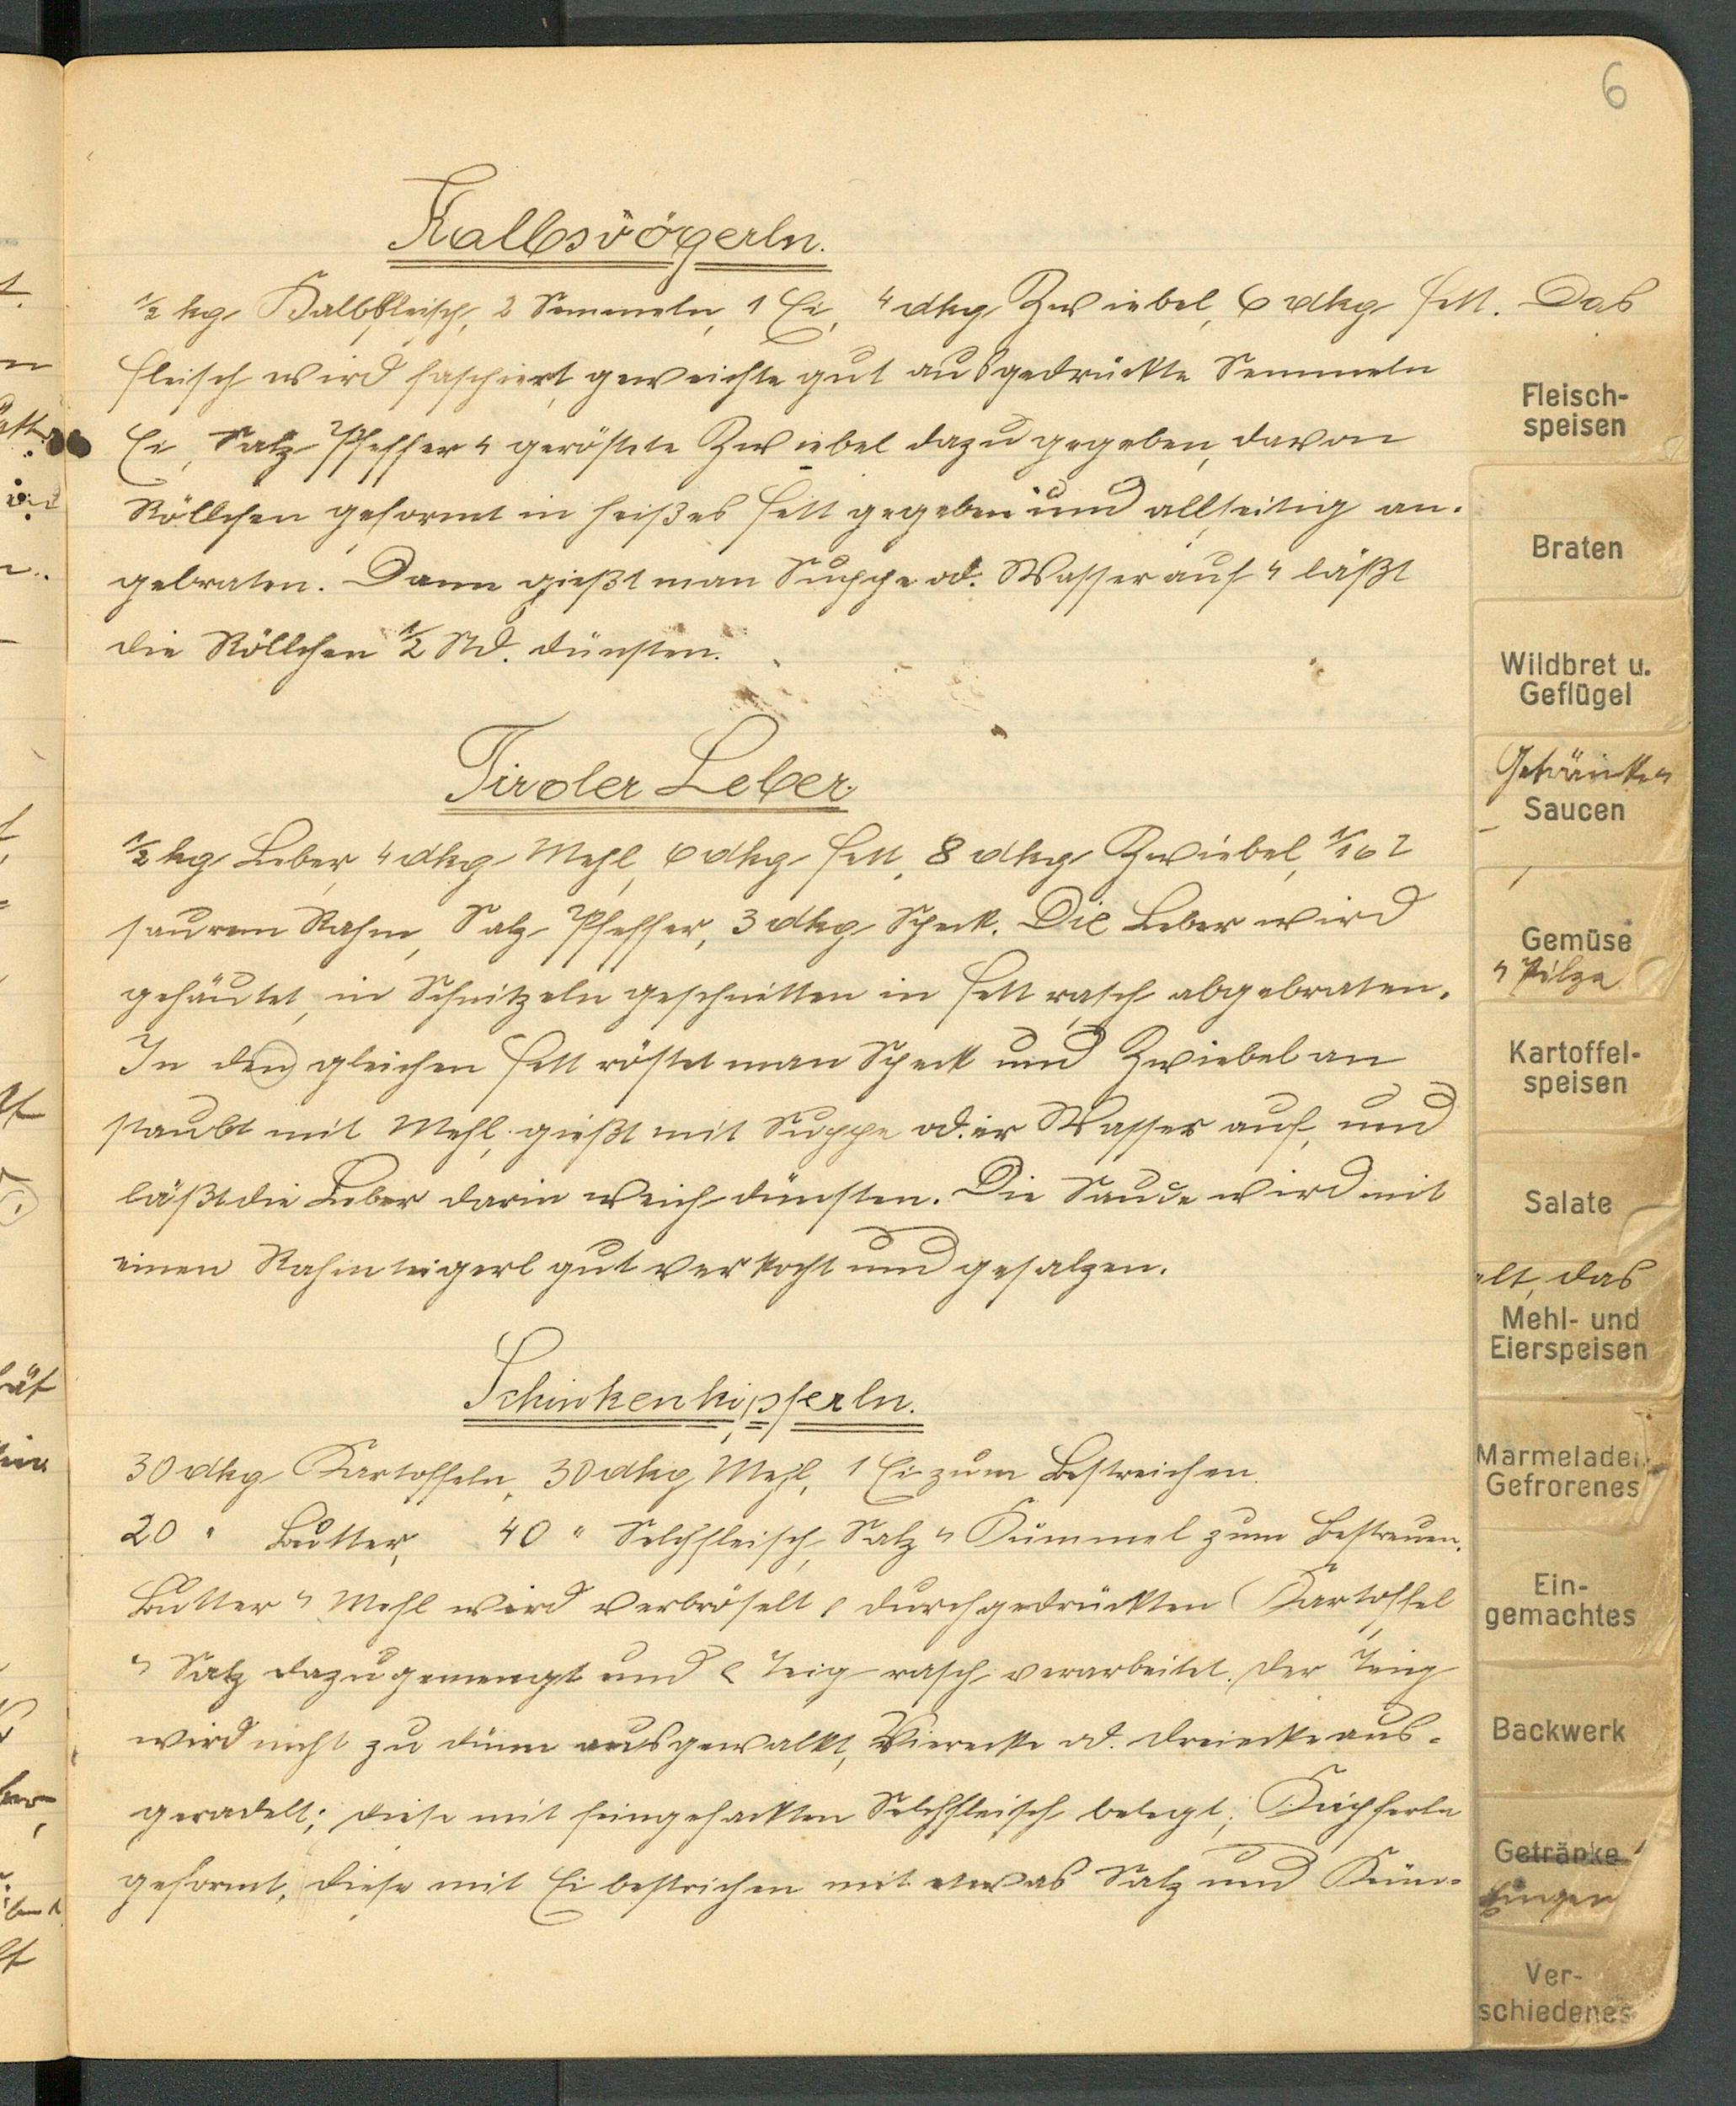 6
Kalbsvögerln.
½ kg Kalbfleisch, 2 Semmeln, 1 Ei, 4 dkg Zwiebel, 6 dkg Fett. Das
Fleisch wird faschiert, geweichte gut ausgedrückte Semmeln
Ei, Salz Pfeffer u geröstete Zwiebel dazu gegeben, davon
Röllchen geformt in heißes Fett gegeben und allseitig an-
gebraten. Dann gießt man Suppe od. Wasser auf u läßt
die Röllchen ½ Std. dünsten.
Tiroler Leber.
½ kg Leber, 4 dkg Mehl, 6 dkg Fett, 8 dkg Zwiebel, 1/16 l
saurem Rahm, Salz Pfeffer, 3 dkg Speck. Die Leber wird
gehäutet, in Schnitzeln geschnitten in Fett rasch abgebraten.
In den gleichen Fett röstet man Speck und Zwiebel an
staubt mit Mehl, gießt mit Suppe oder Wasser auf, und
läßt die Leber darin weich dünsten. Die Sauce wird mit
einen Rahmteigerl gut verkocht und gesalzen.
Schinkenkipferln.
30 dkg Kartoffeln, 30 dkg Mehl, 1 Ei zum Bestreichen.
20 " Butter, 40 " Selchfleisch, Salz u Kümmel zum Bestreuen.
Butter u Mehl wird verbröselt, durchgedrückten Kartoffel
u Salz dazugemengt und Teig rasch verarbeitet. Der Teig
wird nicht zu dünn ausgewalkt, Vierecke od. Dreiecke aus-
geradelt; diese mit feingehackten Selchfleisch belegt; Kipferln
geformt, diese mit Ei bestrichen mit etwas Salz und Küm-
Fleisch-
speisen
Braten
Wildbret u.
Geflügel
Getränke u
Saucen
Gemüse
u Pilze
Kartoffel-
speisen
Salate
elt, das
Mehl- und
Eierspeisen
Marmeladen
Gefrorenes
Ein-
gemachtes
Backwerk
Getränke
Ver-
schiedenes